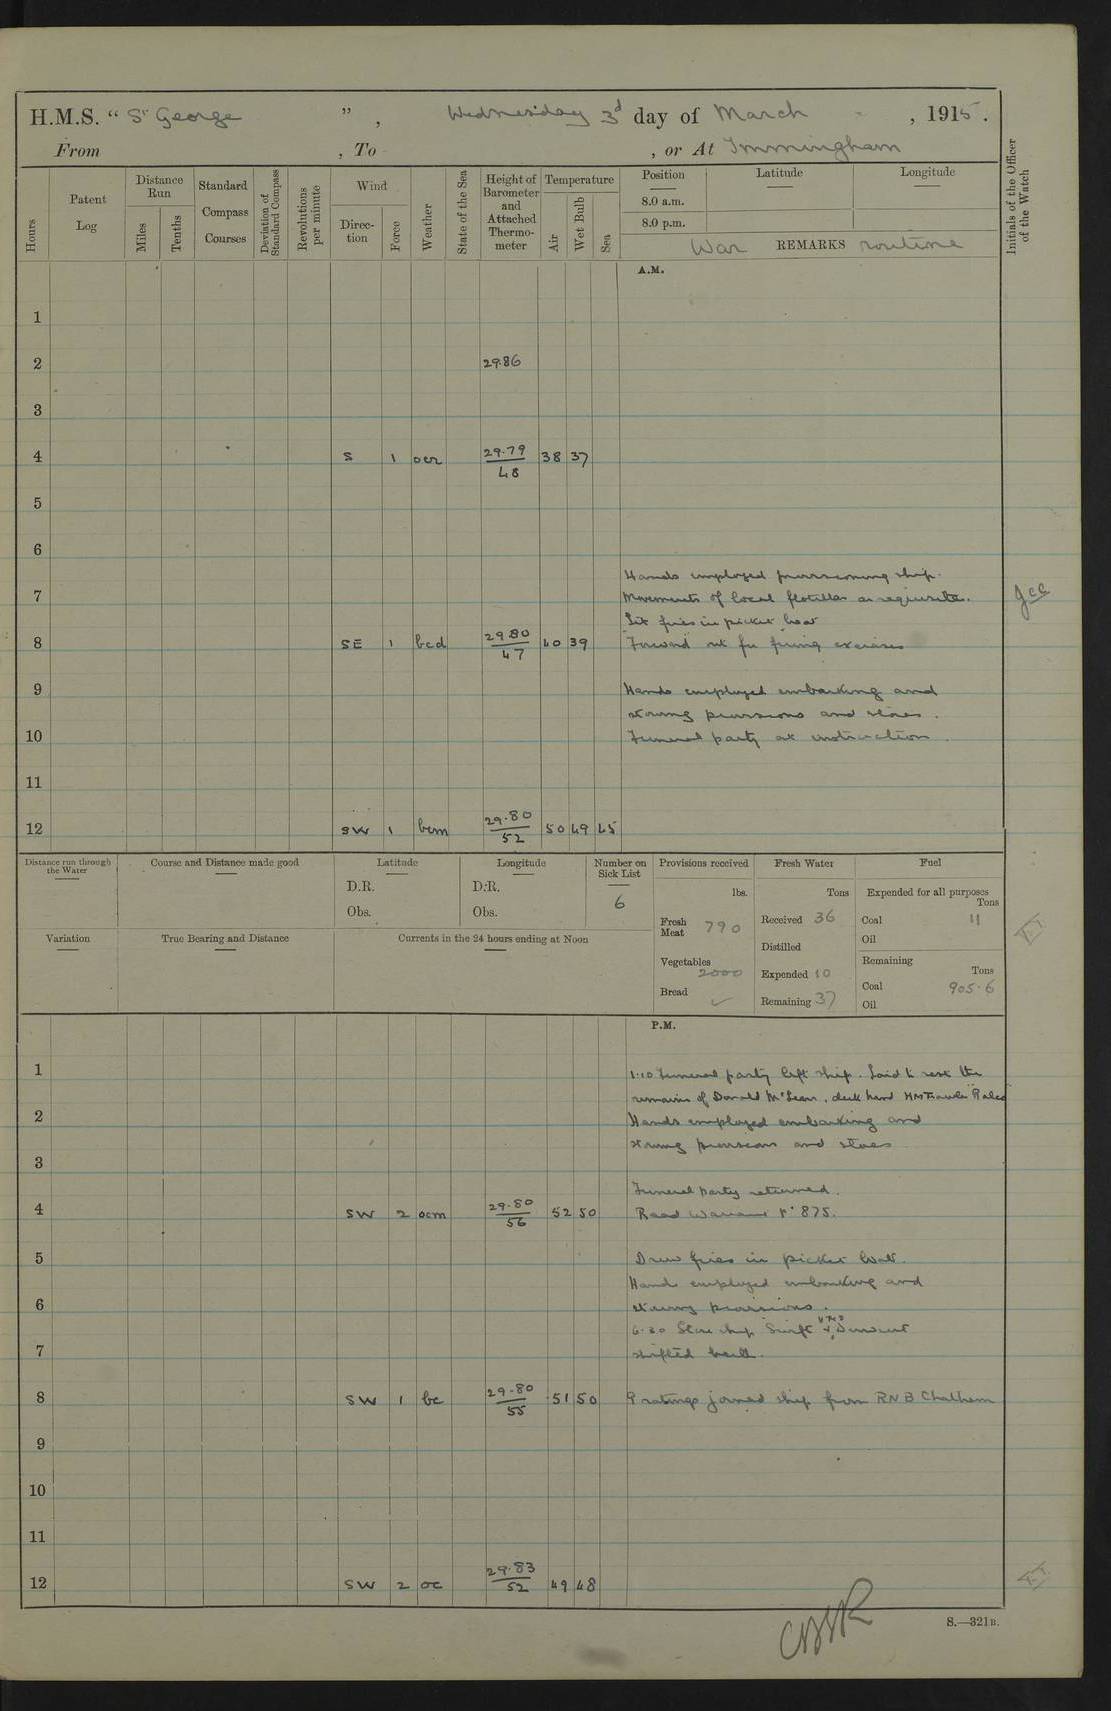 H.M.S. "St George", Wednesday 3d day of March, 1915.
From , To , or At Immingham
Hours
Patent Log
Distance Run
Miles
Tenths
Standard Compass Courses
Deviation of Standard Compass
Revolutions per minute
Wind
Direction
Force
Weather
State of the Sea
Height of Barometer and Attached Thermometer
Temperature
Air
Wet Bulb
Sea
Position
Latitude
Longitude
8.0 a.m.
8.0 p.m.
War REMARKS routine
Initials of the Officer of the Watch
A.M.
1
2 29.86
3
4 S 1 ocr 29.79/48 38 37
5
6
Hands employed provisioning ship.
7 Movements of local flotillas as requisite.
Lit fires in picket boat
8 SE 1 bcd 29.80/47 40 39 Forward for firing exercises
9 Hands employed embarking and
stowing provisions and stores.
10 Funeral party at instruction
11
12 SW 1 bcm 29.80/52 50 49 45
Distance run through the Water
Course and Distance made good
Latitude
D.R.
Obs.
Longitude
D.R.
Obs.
Number on Sick List
6
Provisions received
lbs.
Fresh Meat 790
Vegetables 2000
Bread ✓
Fresh Water
Tons
Received 36
Distilled
Expended 10
Remaining 37
Fuel
Expended for all purposes
Tons
Coal 11
Oil
Remaining
Tons
Coal 905.6
Oil
Variation
True Bearing and Distance
Currents in the 24 hours ending at Noon
P.M.
1 1.10 Funeral party left ship. Laid to rest the
remains of Donald McLean, deck hand HM Trawler
2 Hands employed embarking and
stowing provisions and stores
3
Funeral party returned.
4 SW 2 ocm 29.80/56 52 50 Read Warrant No 875.
5 Drew fires in picket boat.
Hands employed embarking and
6 stowing provisions.
6.30 Store ship Swift & Derwent
7 shifted berth.
8 SW 1 bc 29.80/55 51 50 9 ratings joined ship from RNB Chatham
9
10
11
12 SW 2 oc 29.83/52 49 48
S.—321B.